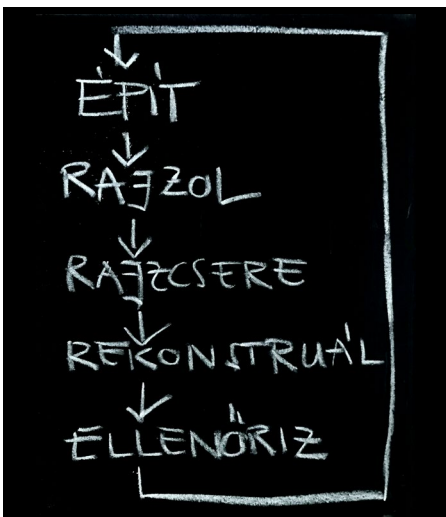 ÉPÍT
RAJZOL
RAJZCSERE
REKONSTRUÁL
ELLENŐRIZ